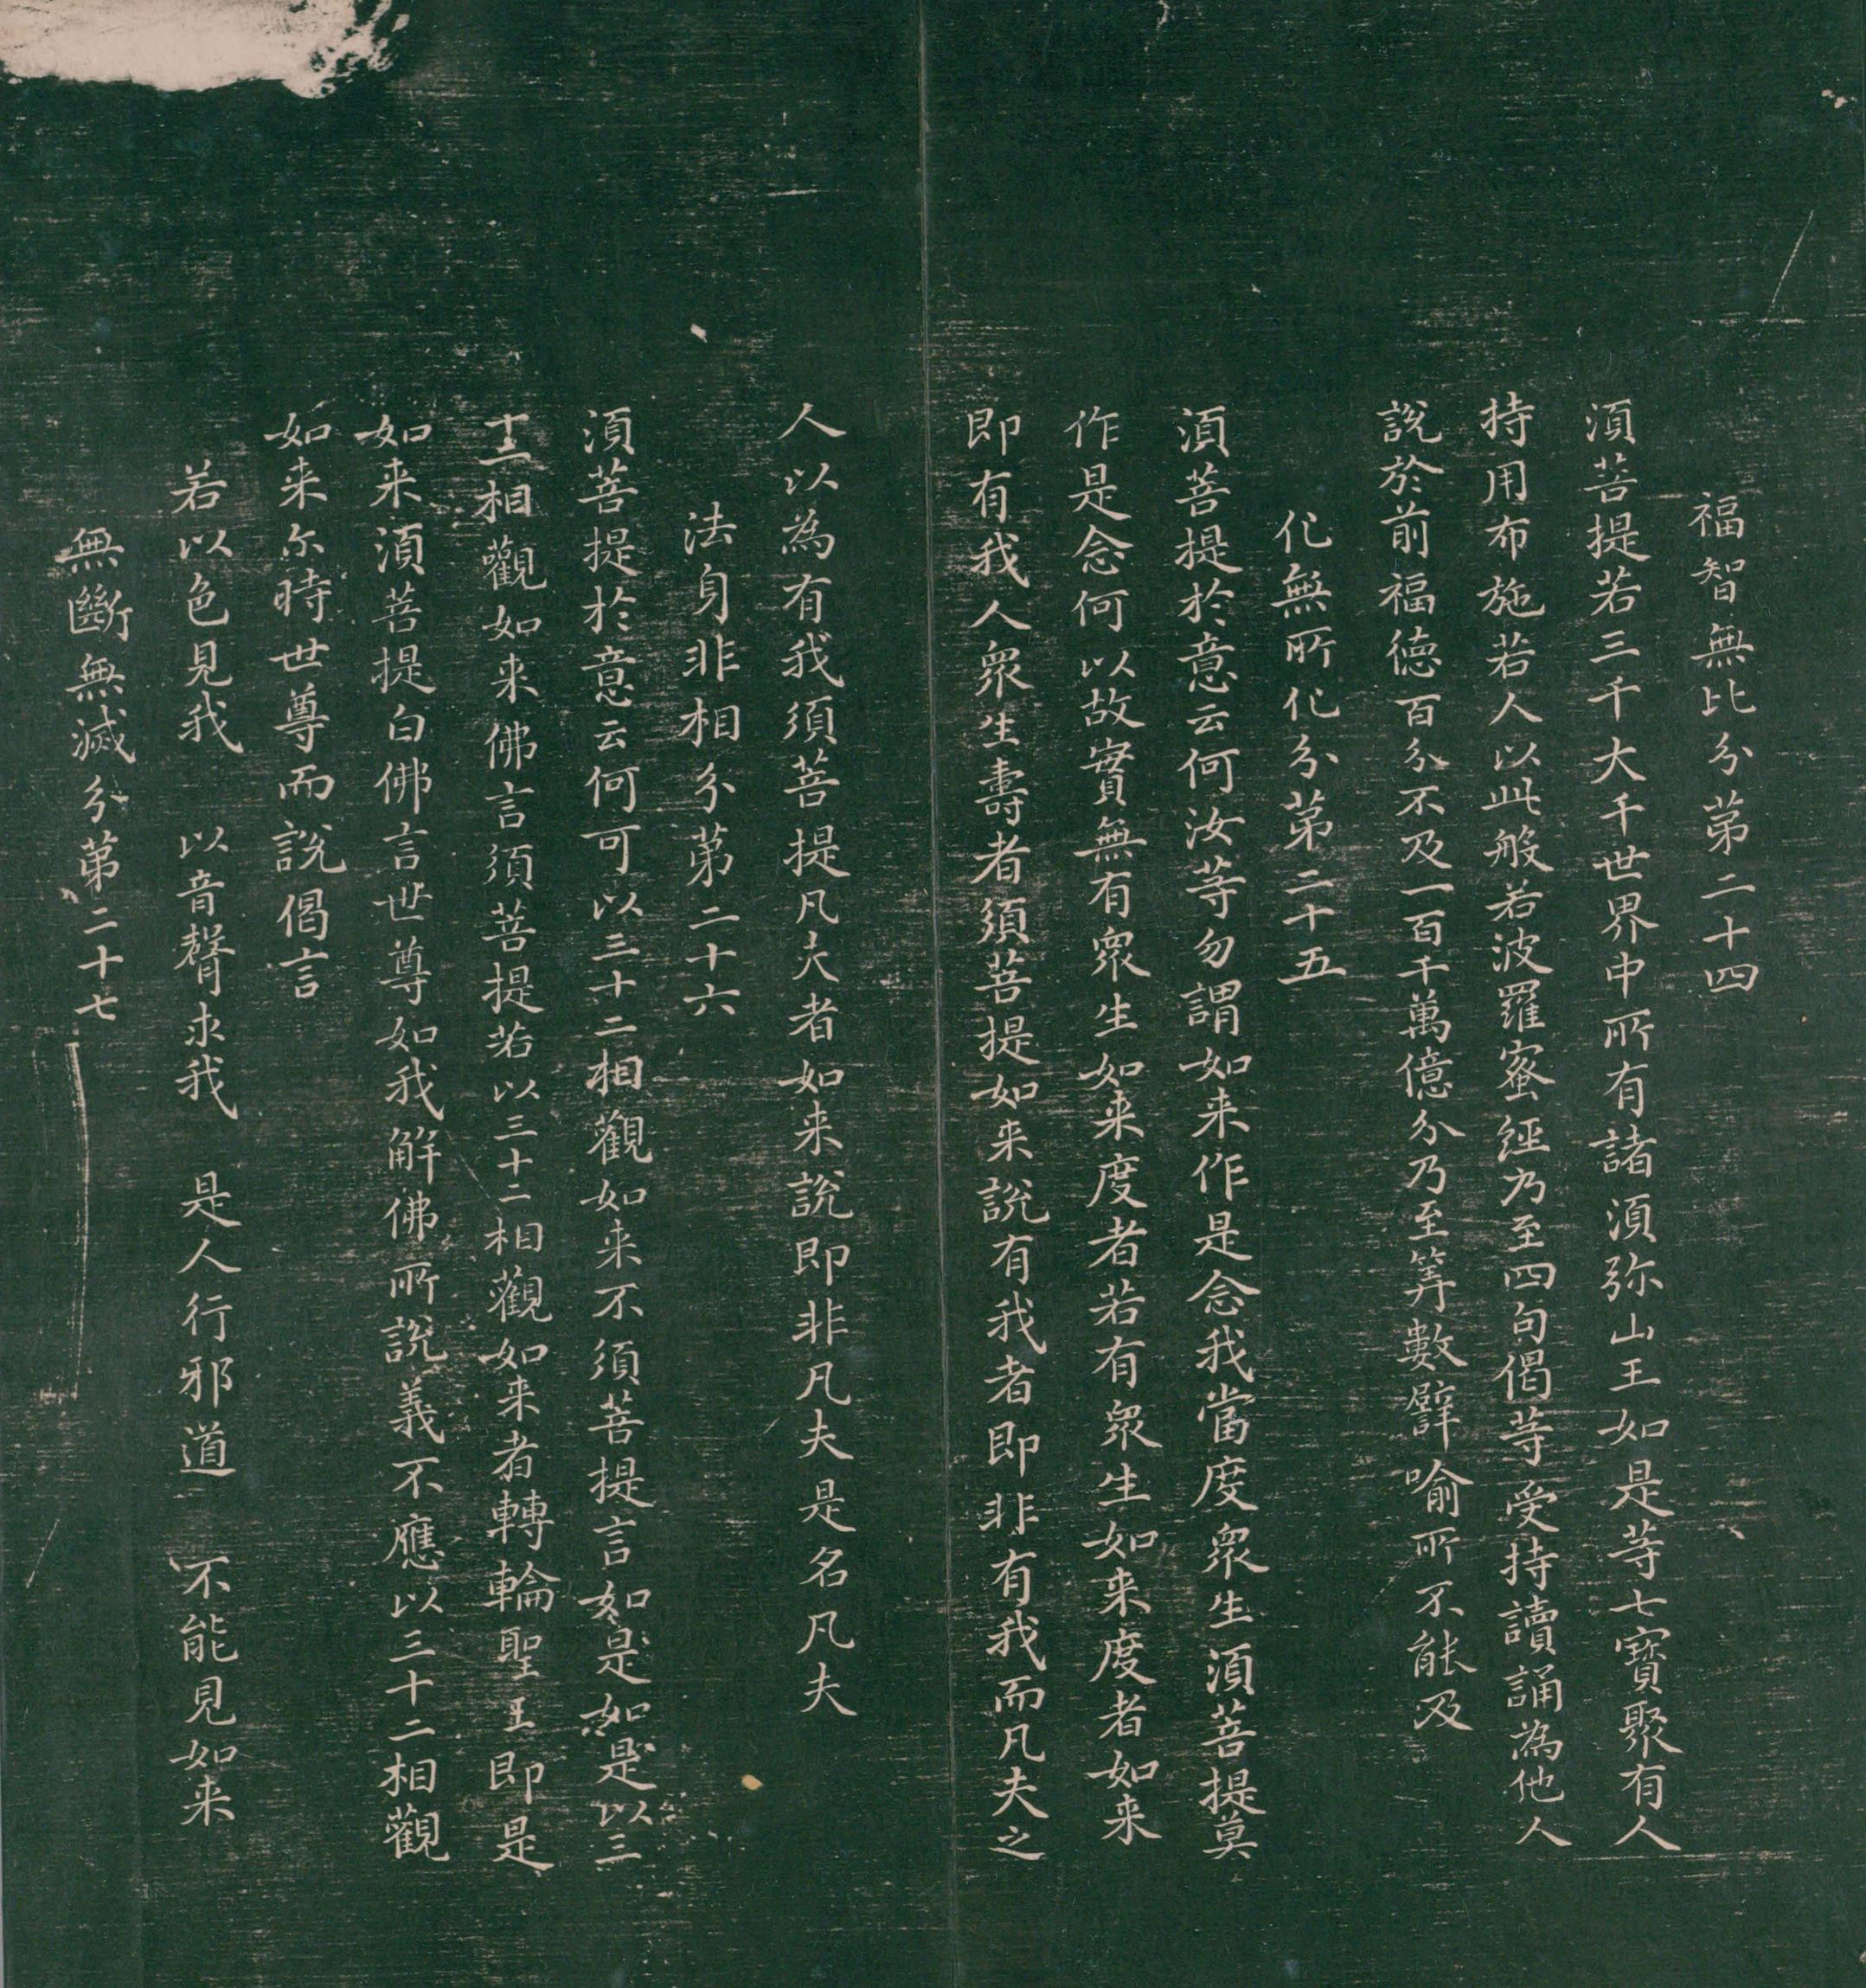 福智無比分第二十四
須菩提若三千大千世界中所有諸須弥山王如是等七寶聚有人
持用布施若人以此般若波羅蜜經乃至四句偈等受持讀誦為他人
說於前福德百分不及一百千萬億分乃至筭數譬喻所不能及
化無所化分第二十五
須菩提於意云何汝等勿謂如来作是念我當度衆生須菩提莫
作是念何以故實無有衆生如来度者若有衆生如来度者如来
即有我人衆生壽者須菩提如来說有我者即非有我而凡夫之
人以為有我須菩提凡夫者如来說即非凡夫是名凡夫
法身非相分第二十六
須菩提於意云何可以三十二相觀如来不須菩提言如是如是以三
十二相觀如来佛言須菩提若以三十二相觀如来者轉輪聖王即是
如来須菩提白佛言世尊如我解佛所說義不應以三十二相觀
如来尔時世尊而說偈言
若以色見我 以音聲求我 是人行邪道 不能見如来
無斷無滅分第二十七